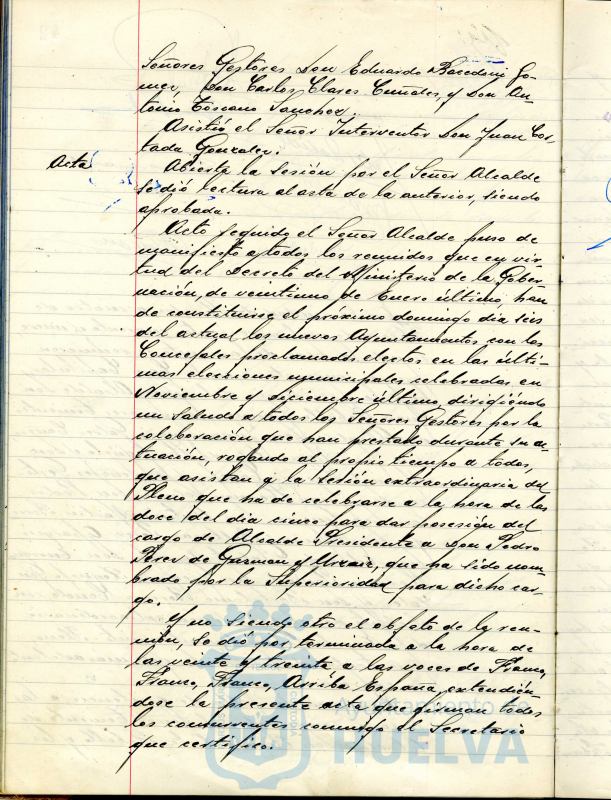 Señores Gestores Don Eduardo Bacedoni Go-
mez, Don Carlos Clares Cumdes, y Don An-
tonio Toscano Sanchez.
Asistió el Señor Interventor Don Juan Cor-
tada Gonzalez.
Acta
Abierta la Sesión por el Señor Alcalde
se dió lectura al acta de la anterior, siendo
aprobada.
Acto seguido el Señor Alcalde puso de
manifiesto a todos los reunidos que en vir-
tud del Decreto del Ministerio de la Gober-
nación, de veintiuno de Enero último, han
de constituirse el próximo domingo dia seis
del actual los nuevos Ayuntamientos con los
Concejales proclamados electos en las últi-
mas elecciones municipales celebradas en
Noviembre y Diciembre último, dirigiéndo
un Saludo a todos los Señores Gestores por la
colaboración que han prestado durante su ac-
tuación, rogando al propio tiempo a todos,
que asistan a la Sesión extraordinaria del
Pleno que ha de celebrarse a la hora de las
doce del dia cinco para dar posesión del
cargo de Alcalde Presidente a Don Pedro
Perez de Guzman y Urzaiz, que ha sido nom-
brado por la Superioridad para dicho car-
go.
Y no siendo otro el objeto de la reu-
nión, se dió por terminada a la hora de
las veinte y treinta a las voces de Franco,
Franco, Franco, Arriba España, extendién-
dose la presente acta que firman todos
los concurrentes conmigo el Secretario
que certifico.
Ayuntamiento de
HUELVA